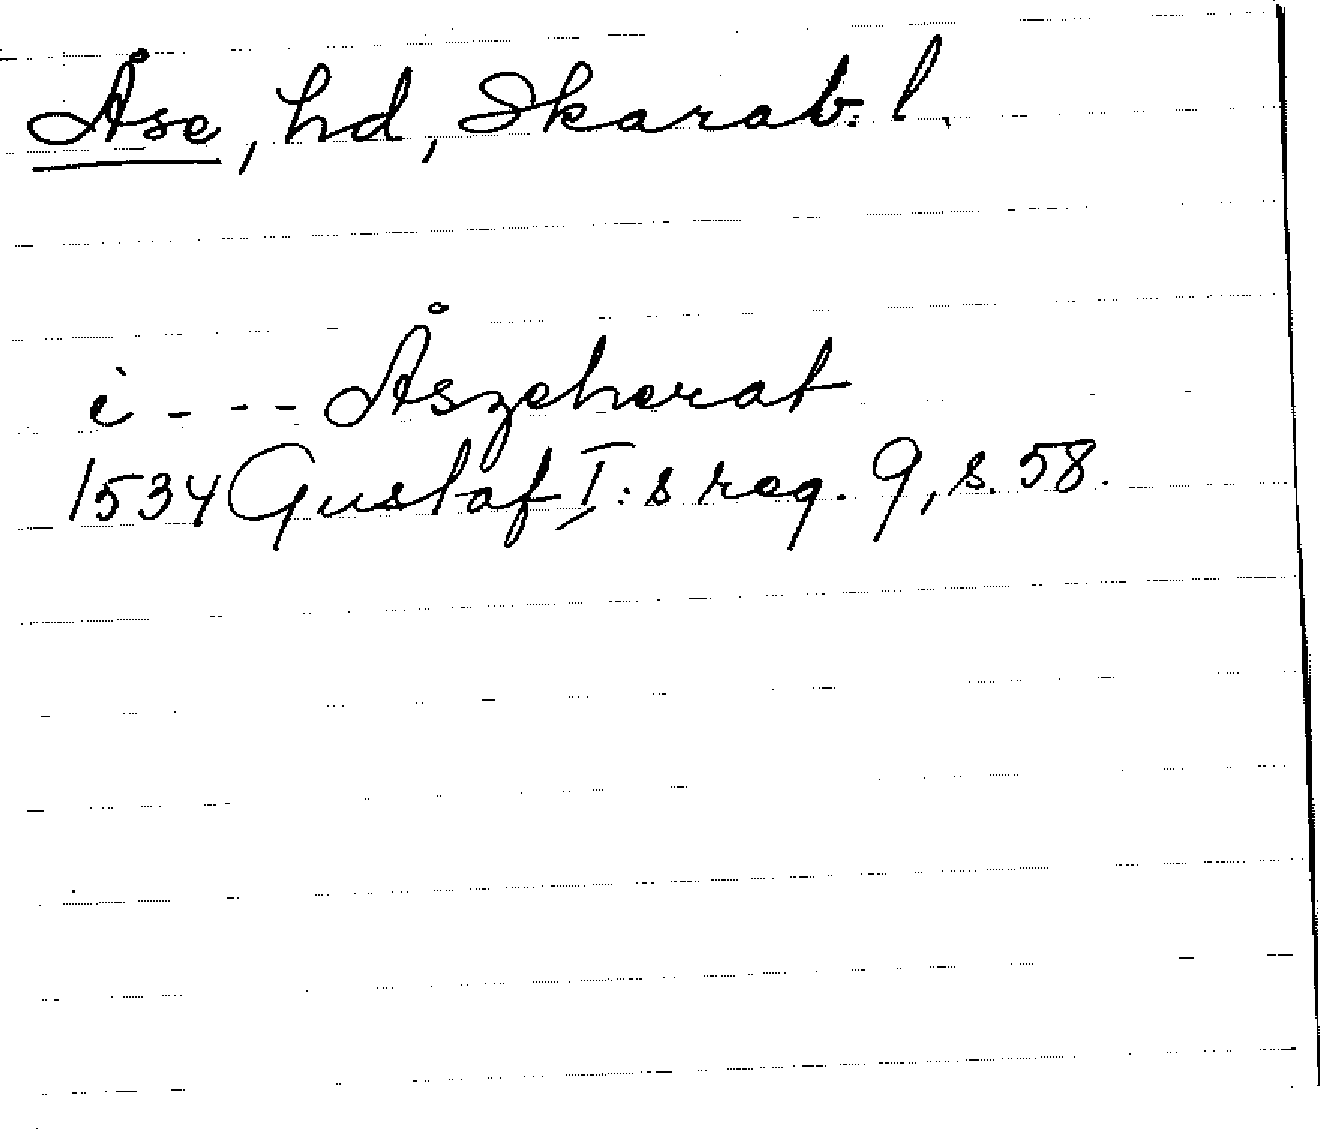 Åse, hd, Skarab. l.
i - - - Åszeherat
1534 Gustaf I:s reg. 9, s. 58.